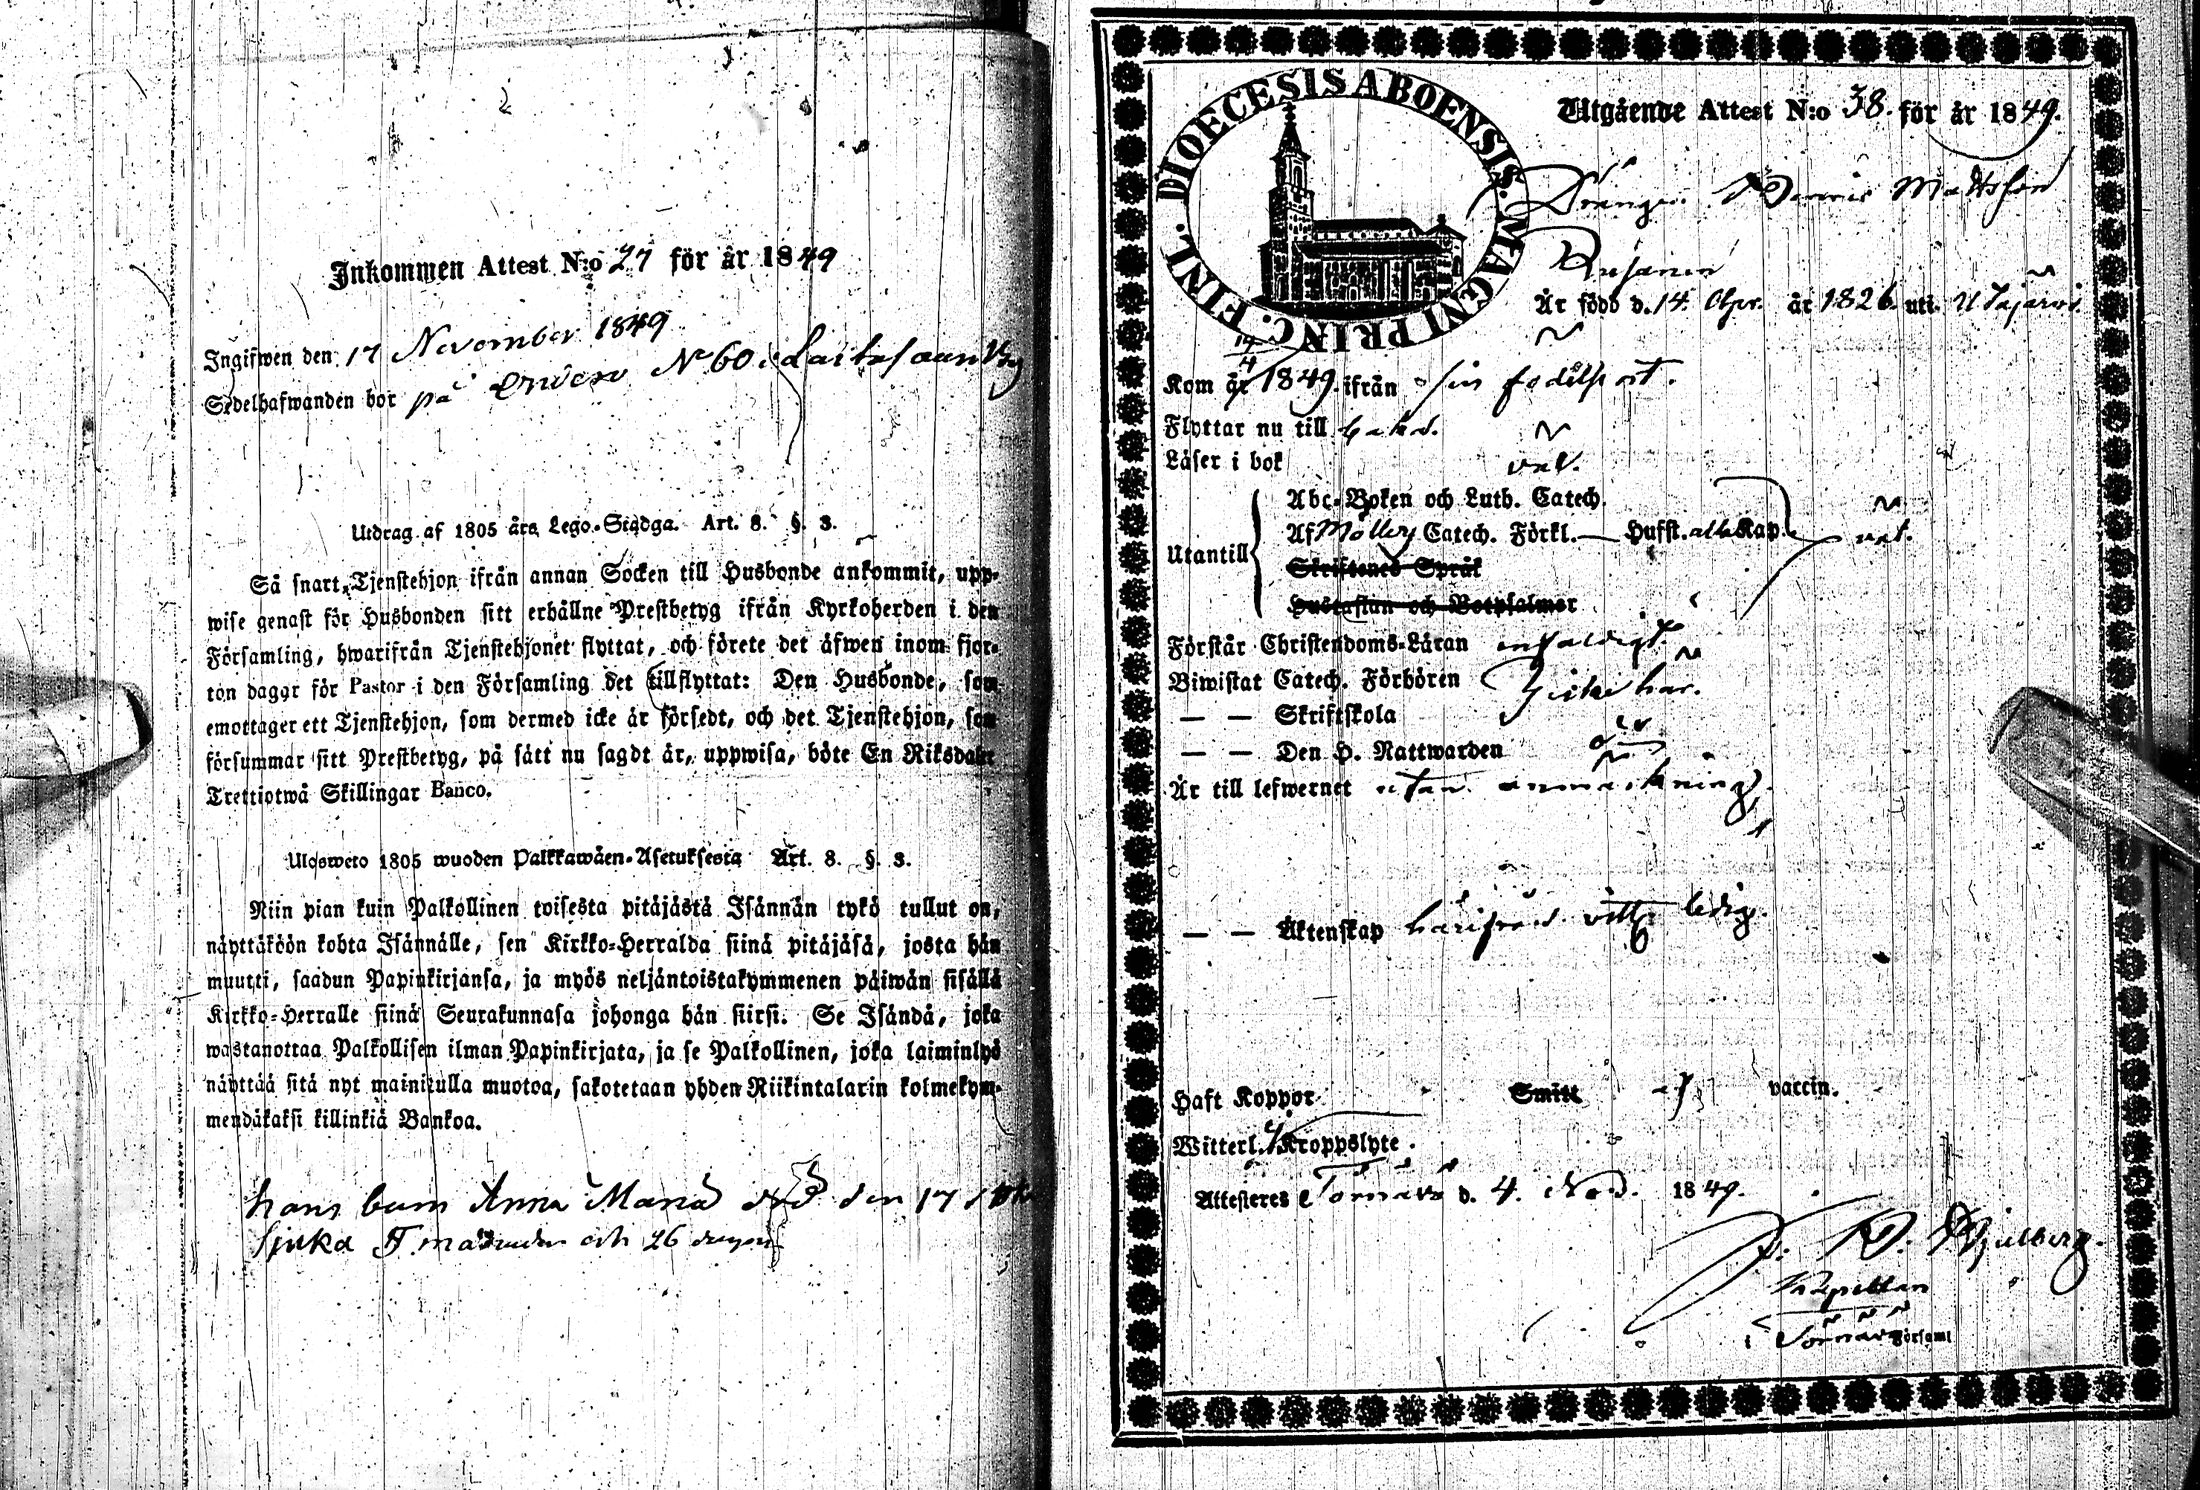 Inkommen Attest N:o 27 för år 1849
Ingifwen den 17 November 1849
Sedelhafwanden bor på N 60 i
Utdrag af 1805 års Lego-Stadga. Art. 8. §. 3.
Så snart Tjenstehjon ifrån annan Socken till Husbonde ankommit, upp-
wise genast för Husbonden sitt erhållne Prestbetyg ifrån Kyrkoherden i den
Församling, hwarifrån Tjenstehjonet flyttat, och förete det äfwen inom fjor-
ton dagar för Pastor i den Församling det tillflyttat: Den Husbonde, som
emottager ett Tjenstehjon, som dermed icke är försedt, och det Tjenstehjon, som
försummar sitt Prestbetyg, på sätt nu sagdt är, uppwisa, böte En Riksdaler
Trettiotwå Skillingar Banco.
Ulosweto 1805 wuoden Palkkawäen-Asetuksesta Art. 8. §. 3.
Niin pian kuin Palkollinen toisesta pitäjästä Isännän tykö tullut on,
näyttäköön kohta Isännälle, sen Kirkko-Herralda siinä pitäjäsä, josta hän
muutti, saadun Papinkirjansa, ja myös neljäntoistakymmenen päiwän sisällä
Kirkko-Herralle siinä Seurakunnasa johonga hän siirsi. Se Isändä, joka
wastanottaa Palkollisen ilman Papinkirjata, ja se Palkollinen, joka laiminlyö
näyttää sitä nyt mainitulla muotoa, sakotetaan yhden Riikintalarin kolmekym-
mendäkaksi killinkiä Bankoa.
hans barn Anna Maria död den 17
sjuka månader och 26 dagar
DIOECESIS ABOENSIS. MAGNI PRINC. FINL.
Utgående Attest N:o 38. för år 1849.
Drängen Mattsson
Är född d. 14. Apr. år 1826 uti Utajärvi
Kom år 14/4 1849. ifrån sin födelseort.
Flyttar nu till
Läser i bok väl.
Utantill
Abc-Boken och Luth. Catech.
Af Möllers Catech. Förkl. — Husst. alla Kap. väl.
Skriftenes Språk
Hustaflan och Botpsalmer
Förstår Christendoms-Läran enfaldigt.
Biwistat Catech. Förhören
— — Skriftskola
— — Den H. Nattwarden
Är till lefwernet utan anmärkning,
— — Äktenskap härifrån ledig.
Haft Koppor Smitt vaccin.
Witterl. Kroppslyte.
Attesteras i Törnävä d. 4. Nov. 1849.
Kapellan
i Törnävä Församl